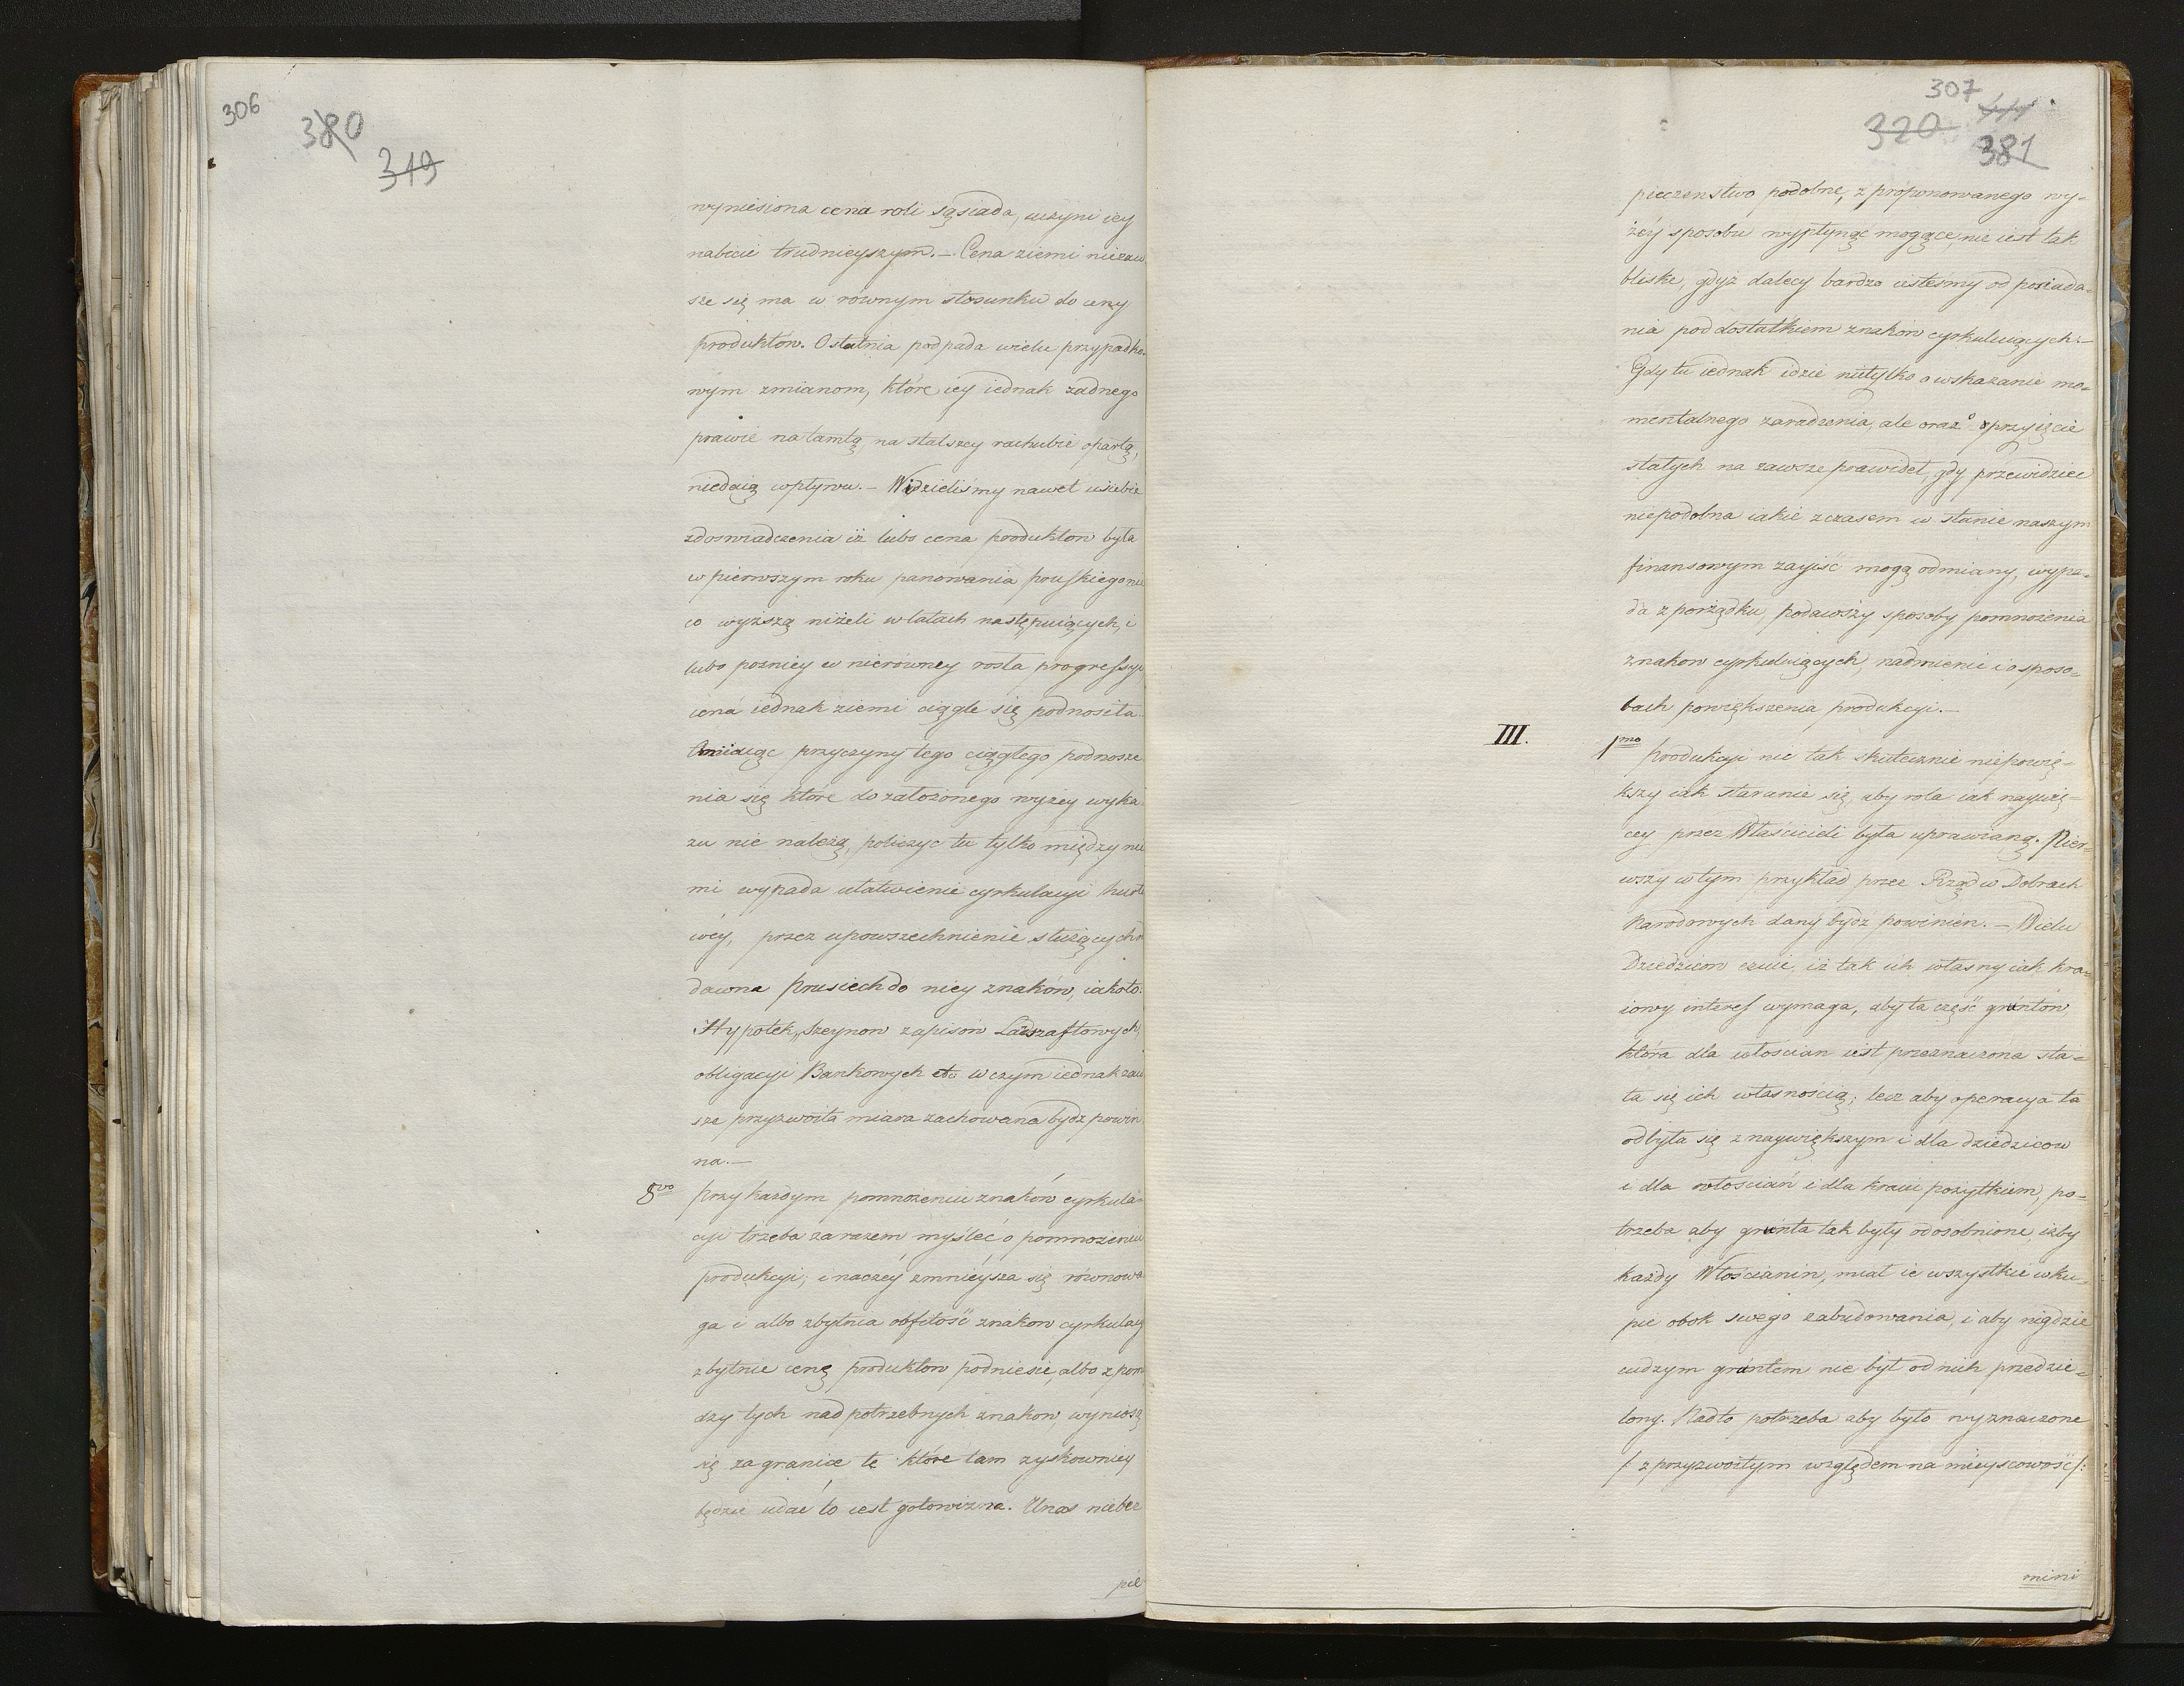 306
380
319
wyniesiona cena roli sąsiada, uczyni iey
nabicie trudnieyszym. – Cena ziemi niezaw
sze się ma w równym stosunku do ceny
produktów. Ostatnia podpada wielu przypadko
wym zmianom, które iey iednak zadnego
prawie na tamtą, na stalszey rachubie opartą,
niedaią wpływu. – Widzieliśmy nawet u siebie
zdoswiadczenia iż lubo cena produktow była
w pierwszym roku panowania pruskiego nie
co wyższą niżeli w latach następuiących, i
lubo pozniey w nierówney rosła progressyi
cena iednak ziemi ciągle się podnosiła.
Omiiaiąc przyczyny tego ciągłego podnosze
nia się które do założonego wyżey wyka
zu nie należą, policzyc tu tylko między nie
mi wypada ułatwienie cyrkulacyi hurto
wéy, przez upowszechnienie służących
dawna Prusiech do niey znaków, iakoto:
Hypotek, Szeynow zapisow Ladszaftowych
obligacyi Bankowych etc w czym iednak zaw
sze przyzwoita miara zachowana bydz powin
na. –
8vo przy każdym pomnożeniu znaków cyrkula
cyi trzeba zarazem myśleć o pomnożeniu
produkcyi, inaczey zmnieysza się równowa
ga i albo zbytnia obfitość znakow cyrkulacyi
zbytnie cenę produktow podniesie, albo z pom
dzy tych nad potrzebnych znakow, wyniosą
się za granice te które tam zyskowniey
będzie udac to iest gotowizna. U nas niebez
pie
307
320
381
pieczenstwo podobne, z proponowanego wy-
żéy sposobu wypłynąć mogące, nie iest tak
bliskie, gdyż dalecy bardzo iesteśmy od posiada-
nia pod dostatkiem znakow cyrkuluiących. –
Gdy tu iednak idzie nietylko o wskazanie mo-
mentalnego zaradzenia, ale oraz o przyięcie
stałych na zawsze prawideł, gdy przewidziec
niepodobna iakie z czasem w stanie naszym
finansowym zayiść mogą odmiany, wypa-
da z porządku podawszy sposoby pomnożenia
znakow cyrkuluiących, nadmienic i o sposo-
bach powiększenia produkcyi. –
III.
1mo Produkcyi nic tak skutecznie niepowię-
kszy iak staranie się, aby rola iak naywię-
cey przez Właścicieli była uprawianą. Pier-
wszy w tym przykład przez Rząd w Dobrach
Narodowych dany bydz powinien. – Wielu
Dziedzicow czuie, iż tak ich własny iak kra-
iowy interes wymaga, aby ta część gruntów,
która dla włoscian iest przeznaczona sta-
ła się ich własnością; lecz aby operacya ta
odbyła się z naywiększym i dla dziedzicow
i dla włoscian i dla kraiu pożytkiem, po-
trzeba aby grunta tak były odosobnione, iżby
każdy Włościanin, miał ie wszystkie w ku-
pie obok swego zabudowania, i aby nigdzie
cudzym gruntem nie był od nich przedzie-
lony. Nadto potrzeba aby było wyznaczone
/: z przyzwoitym względem na mieyscowość :/
mini